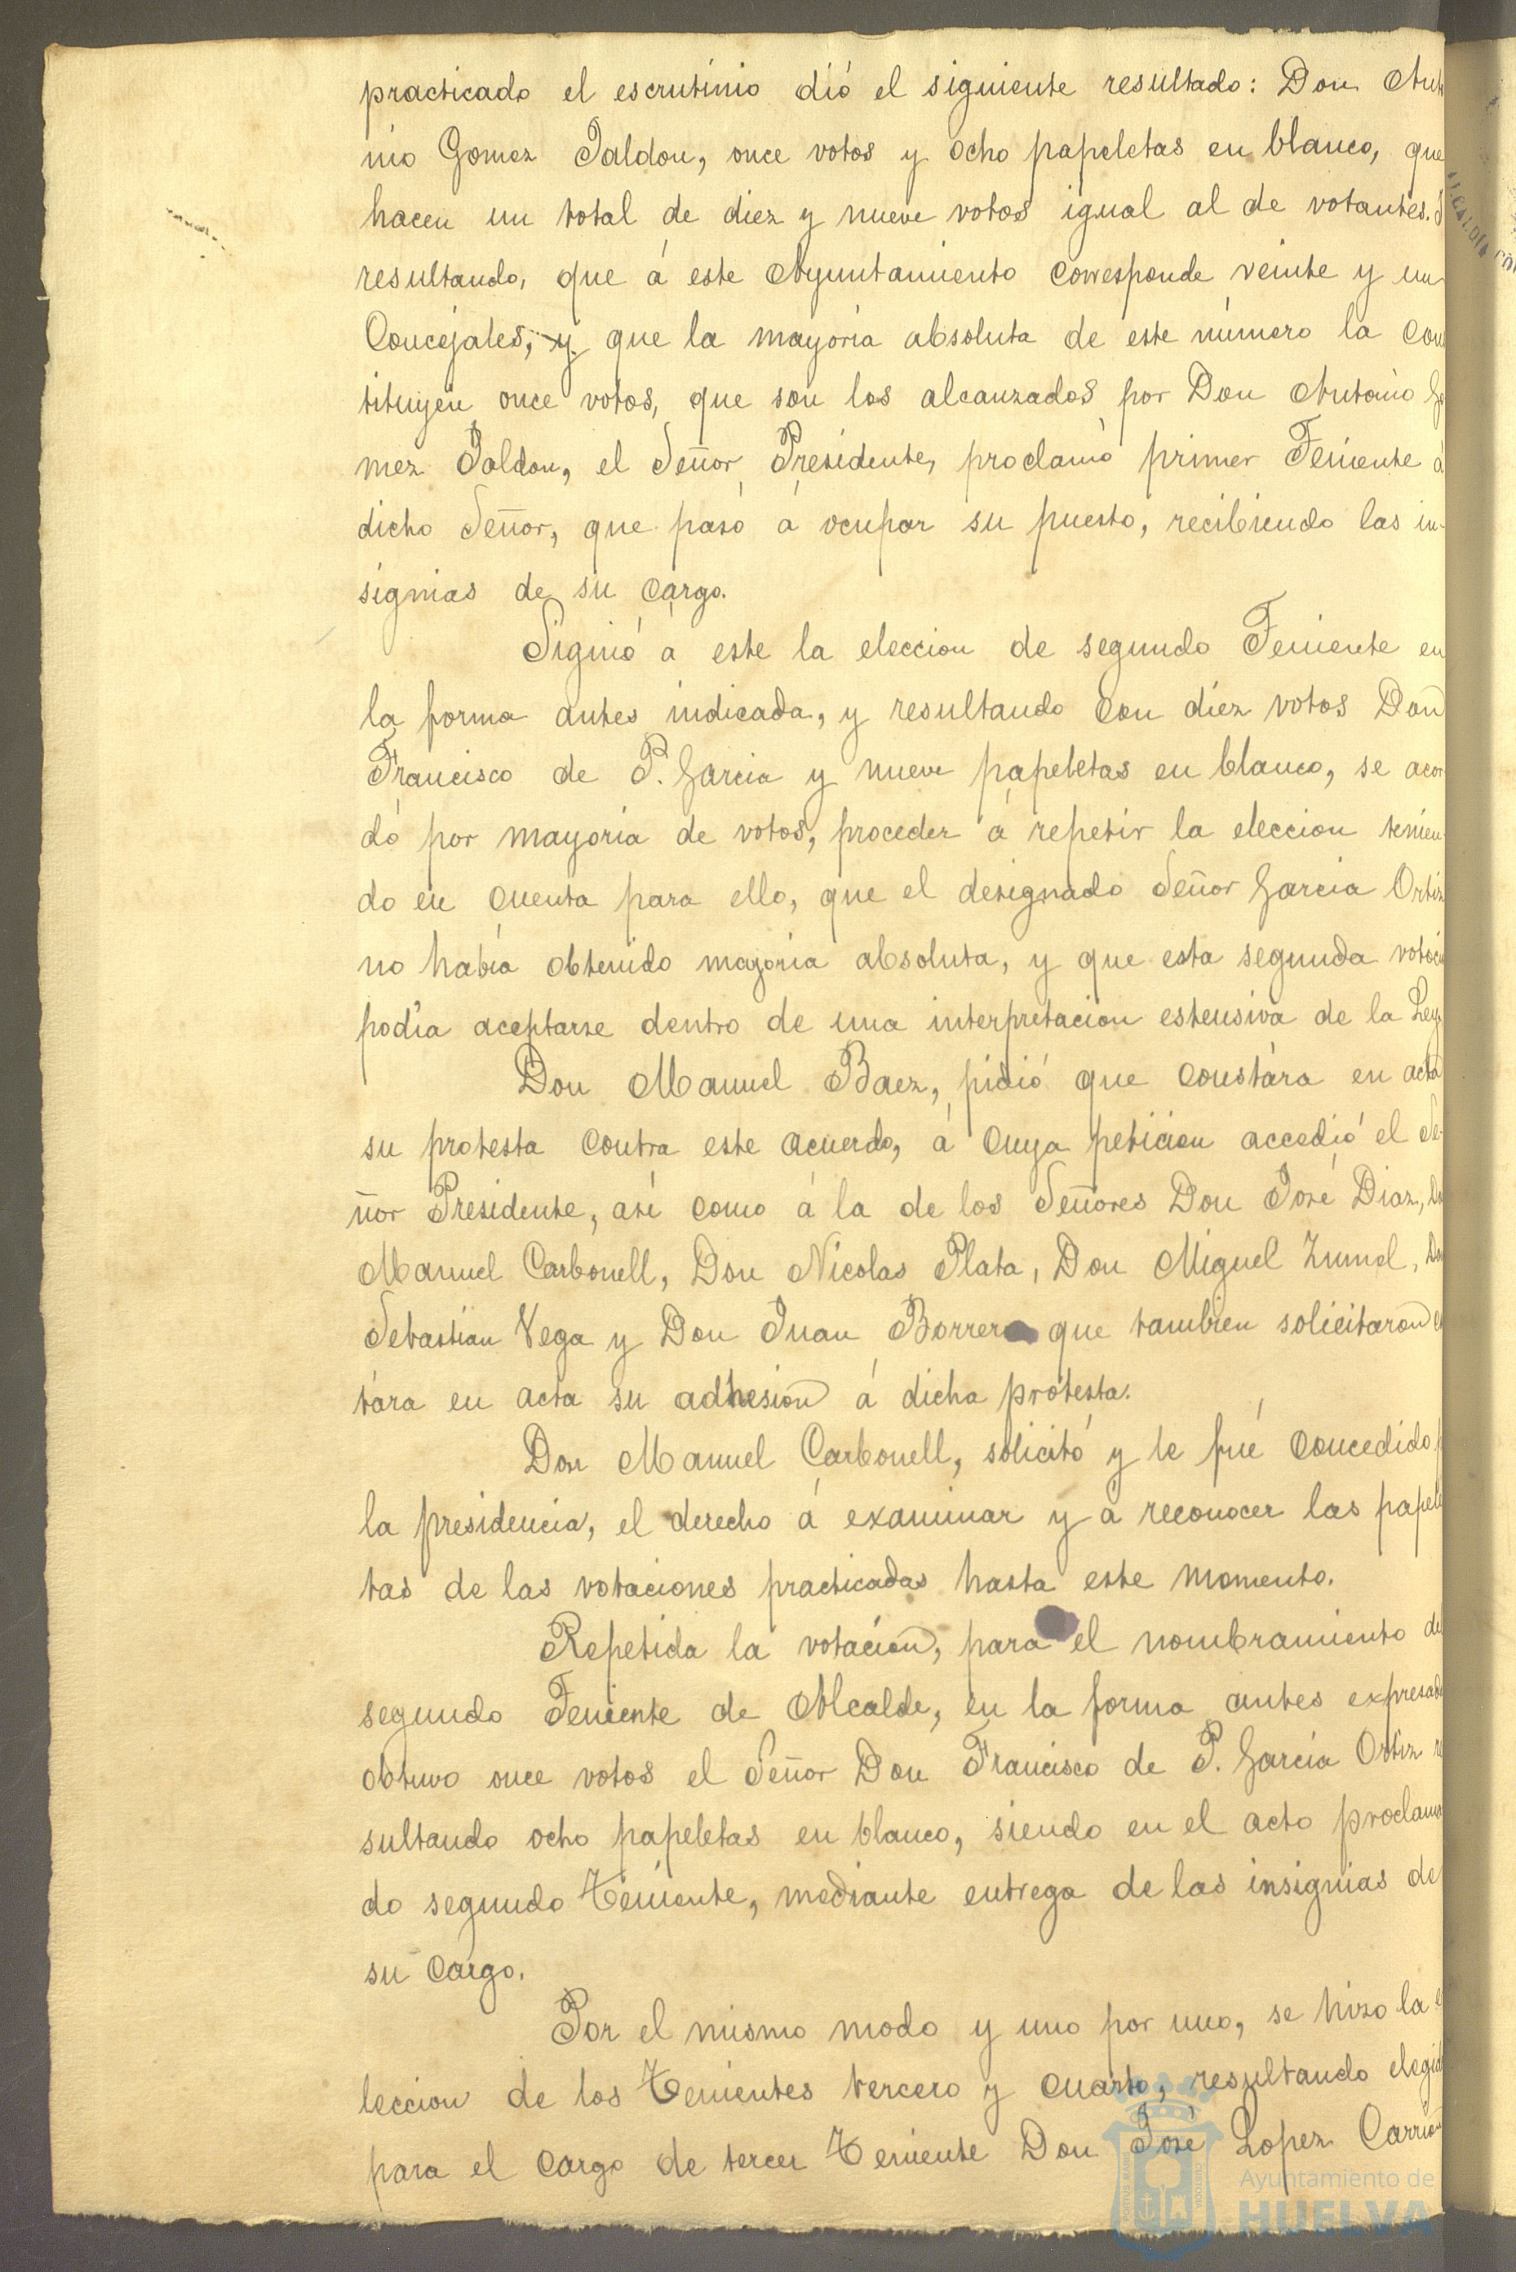 practicado el escrutinio dió el siguiente resultado: Don Anto
nio Gomez Jaldon, once votos y ocho papeletas en blanco, que
hacen un total de diez y nueve votos igual al de votantes.
resultando, que á este Ayuntamiento corresponde veinte y un
Concejales, y que la mayoria absoluta de este número la cons
tituyen once votos, que son los alcanzados por Don Antonio Go
mez Jaldon, el Señor Presidente, proclamó primer Teniente á
dicho Señor, que pasó á ocupar su puesto, recibiendo las in-
signias de su cargo.
Siguió á este la eleccion de segundo Teniente en
la forma antes indicada, y resultando con diez votos Don
Francisco de P. Garcia y nueve papeletas en blanco, se acor
dó por mayoria de votos, proceder á repetir la eleccion tenien
do en cuenta para ello, que el designado Señor Garcia Ortiz
no habia obtenido mayoria absoluta, y que esta segunda votacion
podia aceptarse dentro de una interpretacion estensiva de la Ley.
Don Manuel Baez, pidió que constára en acta
su protesta contra este acuerdo, á cuya peticion accedió el Se-
ñor Presidente, asi como á la de los Señores Don José Diaz, Don
Manuel Carbonell, Don Nicolas Plata, Don Miguel Zumel, Don
Sebastian Vega y Don Juan Borrero que tambien solicitaron
tára en acta su adhesion á dicha protesta.
Don Manuel Carbonell, solicitó y le fué concedido
la presidencia, el derecho á examinar y á reconocer las pape
tas de las votaciones practicadas hasta este momento.
Repetida la votacion, para el nombramiento de
segundo Teniente de Alcalde, en la forma antes expresada
obtuvo once votos el Señor Don Francisco de P. Garcia Ortiz re
sultando ocho papeletas en blanco, siendo en el acto proclama
do segundo Teniente, mediante entrega de las insignias de
su cargo.
Por el mismo modo y uno por uno, se hizo la e
leccion de los Tenientes tercero y cuarto, resultando elegido
para el cargo de tercer Teniente Don José Lopez Carrion
Ayuntamiento de
HUELVA